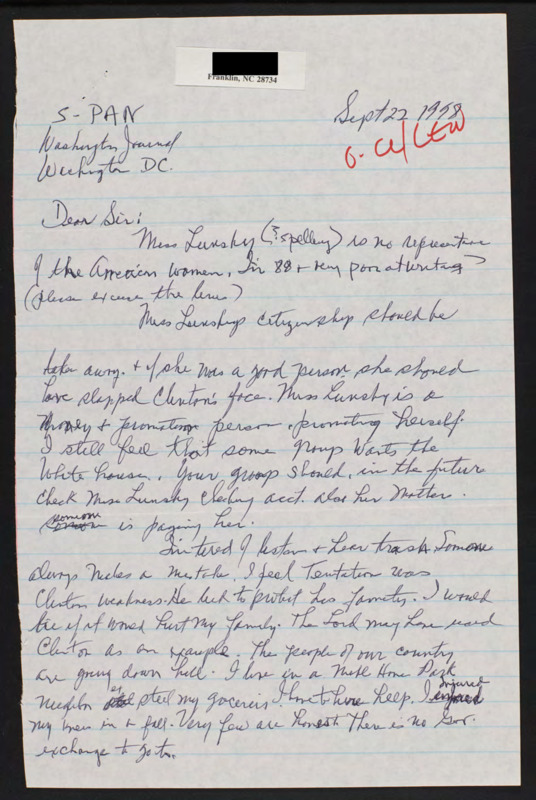 Franklin, NC 28734
Sept 22 1998
S-PAN
Washington Journal
Washington DC.
Dear Sir:
Miss Lunsky (? spelling) is no representive
of the American women. I'm 88 + very poor at writing
(please excuse the lines)
Miss Lunskys citizenship should be
taken away. + if she was a good person she should
have slapped Clinton's face. Miss Lunsky is a
Money + promotion person, promoting herself.
I still feel that some group wants the
White house. Your group should, in the future
check Miss Lunsky Checking acct. also her Mother.
someone is paying her.
I'm tired of + hear trash. Someone
always makes a mistake. I feel Temtation was
Clinton weakness. He lied to protect his family. I would
lie if it would hurt my family. The Lord may have used
Clinton as an example. The people of our country
are going down hill. I live in a Mobile Home Park
Neighbor steal my groceries. I have to have help. I injured
my knee in a fall. Very few are honest. There is no Gov.
exchange to go to.